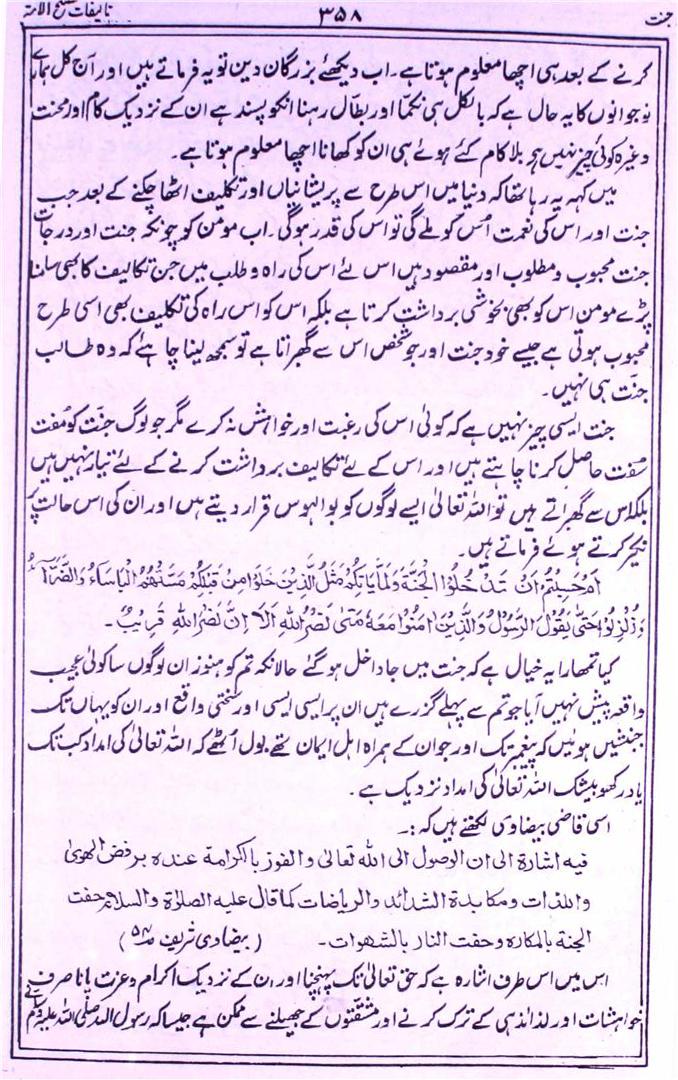 جنت ۳۵۸ تالیفات مصلح الامت
کرنے کے بعد ہی اچھا معلوم ہوتا ہے۔ اب دیکھئے بزرگان دین تو یہ فرماتے ہیں اور آج کل ہمارے
نوجوانوں کا یہ حال ہے کہ بالکل ہی نکما اور بطّال رہنا انکو پسند ہے ان کے نزدیک کام اور محنت
وغیرہ کوئی چیز نہیں ہے بلا کام کئے ہوئے ہی ان کو کھانا اچھا معلوم ہوتا ہے۔
میں کہہ یہ رہا تھا کہ دنیا میں اس طرح سے پریشانیاں اور تکلیف اٹھا چکنے کے بعد جب
جنت اور اس کی نعمت اُس کو ملے گی تو اس کی قدر ہوگی۔ اب مومن کو چونکہ جنت اور درجات
جنت محبوب و مطلوب اور مقصود ہیں اس لئے اس کی راہ و طلب میں جن تکالیف کا بھی سامنا
پڑے مومن اس کو بھی بخوشی برداشت کرتا ہے بلکہ اس کو اس راہ کی تکلیف بھی اسی طرح
محبوب ہوتی ہے جیسے خود جنت اور جو شخص اس سے گھبراتا ہے تو سمجھ لینا چاہئے کہ وہ طالب
جنّت ہی نہیں۔
جنت ایسی چیز نہیں ہے کہ کوئی اس کی رغبت اور خواہش نہ کرے مگر جو لوگ جنّت کو مُفت
مُفت حاصل کرنا چاہتے ہیں اور اس کے لئے تکالیف برداشت کرنے کے لئے تیار نہیں ہیں
بلکہ اس سے گھبراتے ہیں تو اللہ تعالیٰ ایسے لوگوں کو بوالہوس قرار دیتے ہیں اور ان کی اس حالت پر
نکیر کرتے ہوئے فرماتے ہیں۔
اَمْ حَسِبْتُمْ اَنْ تَدْخُلُوا الْجَنَّةَ وَلَمَّا يَاْتِكُمْ مَثَلُ الَّذِيْنَ خَلَوْا مِنْ قَبْلِكُمْ مَسَّتْهُمُ الْبَاْسَآءُ وَالضَّرَّآءُ
وَزُلْزِلُوْا حَتّٰى يَقُوْلَ الرَّسُوْلُ وَالَّذِيْنَ اٰمَنُوْا مَعَهٗ مَتٰى نَصْرُ اللهِ اَلَا اِنَّ نَصْرَ اللهِ قَرِيْبٌ۔
کیا تمھارا یہ خیال ہے کہ جنت میں جا داخل ہو گئے حالانکہ تم کو ہنوز ان لوگوں سا کوئی عجیب
واقعہ پیش نہیں آیا جو تم سے پہلے گزرے ہیں ان پر ایسی ایسی اور سختی واقع اور ان کو یہاں تک
جنبشیں ہوئیں کہ پیغمبر تک اور جو ان کے ہمراہ اہل ایمان تھے بول اُٹھے کہ اللہ تعالیٰ کی امداد کب تک
یاد رکھو بیشک اللہ تعالیٰ کی امداد نزدیک ہے۔
اسی قاضی بیضاوی لکھتے ہیں کہ:۔
فيه اشارة الى ان الوصول الى الله تعالى والفوز بالكرامة عنده برفض الهوىٰ
واللذات ومكابدة الشدائد والرياضات كما قال عليه الصلوٰة والسلام حفت
الجنة بالمكاره وحفت النار بالشهوات۔ (بیضاوی شریف)
اس میں اس طرف اشارہ ہے کہ حق تعالیٰ تک پہنچنا اور ان کے نزدیک اکرام و عزت پانا صرف
خواہشات اور لذائذ ہی کے ترک کرنے اور مشقّتوں کے جھیلنے سے ممکن ہے جیسا کہ رسول اللہ صلی اللہ علیہ وسلم نے